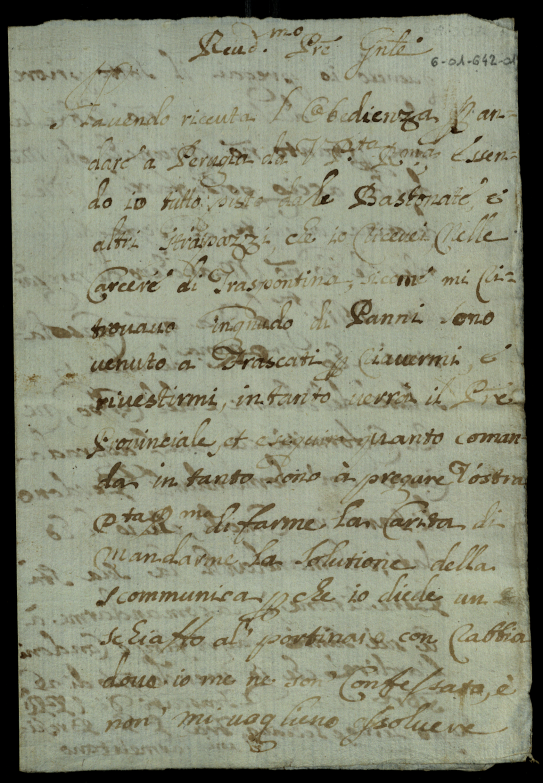 Reud.mo Pre Gnle
6-01-642-01
havendo riceuta l'Obedienza p. an-
dare à Perugia da V. P.ta R.ma Essen-
do io tutto pisto dalle Bastonate, è
altri strapazzi che io riceuei nelle
Carcere di Traspontina, sicome mi ri-
trouauo ingnudo di Panni sono
uenuto à Frascati p. riauermi, è
riuestirmi, in tanto uerrà il Pre
Prouinciale, et eseguirò quanto coman-
da in tanto sono à pregare Vostra
P.ta R.ma di farme la Carità di
mandarme la solutione della
scommunica p che io diede un
schiaffo al portinaio con rabbia
doue io me ne son Confessato, è
non mi uogliono assoluere